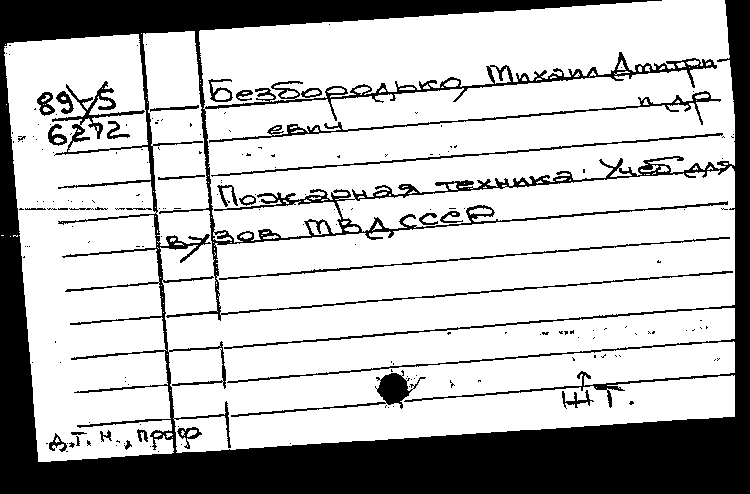 89-5
6272
Безбородько, Михаил Дмитри-
евич и др
Пожарная техника: Учеб для
вузов МВД СССР
т.
д.т.н., проф